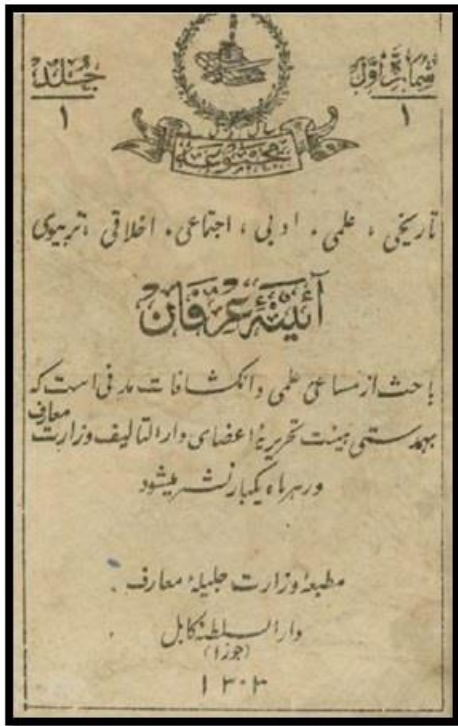 شمارۀ اوّل
۱
جلد
۱
سال اول
مجموعۀ
تاریخی ، علمی ، ادبی ، اجتماعی ، اخلاقی ، تربیوی
آئینۀ عرفان
باحث از مساعئ علمی و انکشافات مدنی است که
بهمدستی هیئت تحریریۀ اعضای دار التالیف وزارت معارف
در هر ماه یکبار نشر میشود
مطبعۀ وزارت جلیلۀ معارف .
دار السلطنه کابل
(جوزا)
۱۳۰۳